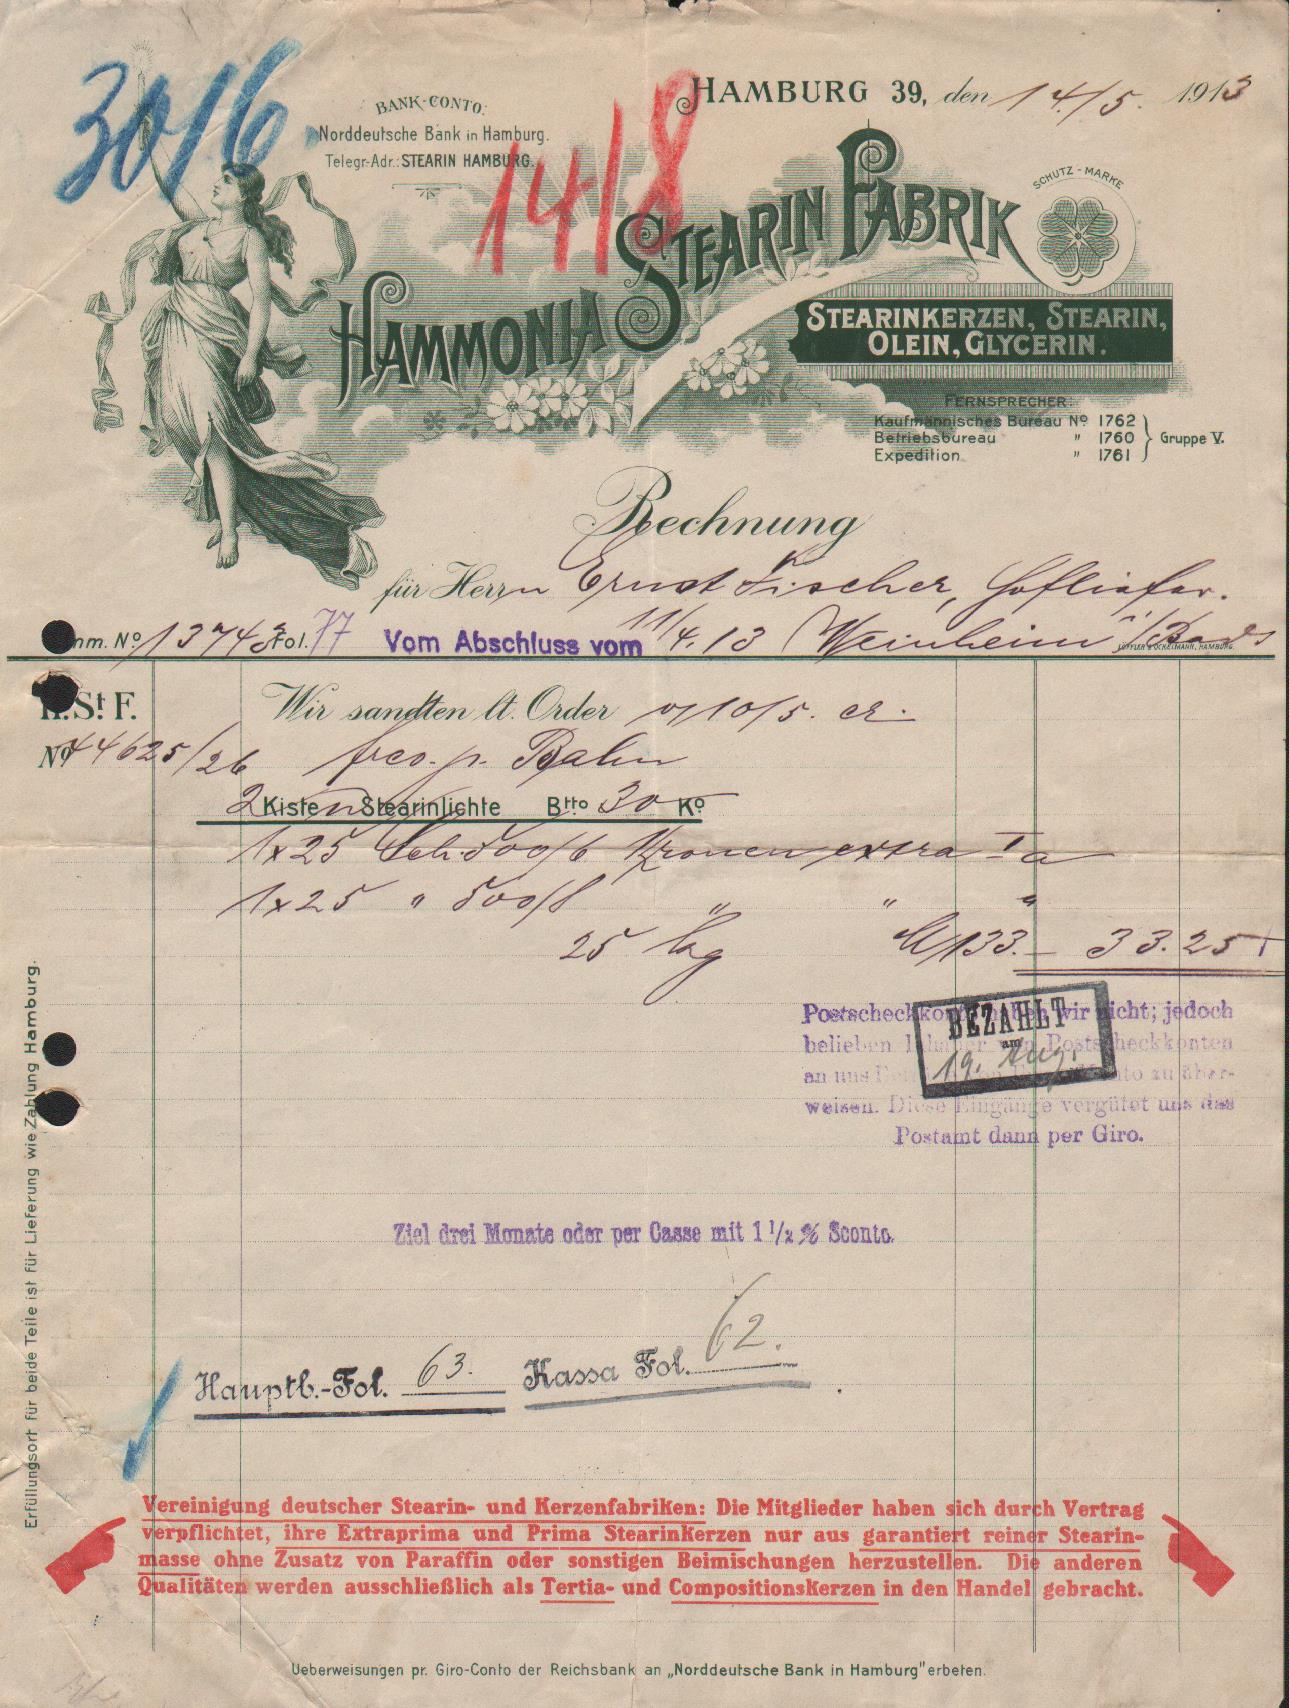 30/6
14/8
BANK-CONTO:
Norddeutsche Bank in Hamburg.
Telegr-Adr.: STEARIN HAMBURG.
HAMBURG 39, den 14/5. 1913
HAMMONIA STEARIN FABRIK
SCHUTZ-MARKE
STEARINKERZEN, STEARIN,
OLEIN, GLYCERIN.
FERNSPRECHER:
Kaufmännisches Bureau No 1762
Betriebsbureau " 1760
Expedition " 1761
Gruppe V.
Rechnung
für Herrn Ernst Fischer, Hoflieferr.
Weinheim i/Bad
mm. No 13743 Fol. 77 Vom Abschluss vom 11/4.13
LÜTTLER & OCKELMANN, HAMBURG.
H.St F. Wir sandten lt. Order v/10/5. cr.
No 44625/26 frco. p. Bahn
2 Kisten Stearinlichte Btto 30 Ko
1x25 Sch. 500/6 Kronen extra Ia
1x25 " 500/8 " " "
25 kg M 133.— 33.25
Postscheckkonto haben wir nicht; jedoch
belieben Inhaber von Postscheckkonten
an uns Konto zu über-
weisen. Diese Eingänge vergütet uns das
Postamt dann per Giro.
BEZAHLT
am
19. Aug.
Ziel drei Monate oder per Casse mit 1 1/2 % Sconto.
Hauptb.-Fol. 63. Kassa Fol. 62.
Erfüllungsort für beide Teile ist für Lieferung wie Zahlung Hamburg.
Vereinigung deutscher Stearin- und Kerzenfabriken: Die Mitglieder haben sich durch Vertrag
verpflichtet, ihre Extraprima und Prima Stearinkerzen nur aus garantiert reiner Stearin-
masse ohne Zusatz von Paraffin oder sonstigen Beimischungen herzustellen. Die anderen
Qualitäten werden ausschließlich als Tertia- und Compositionskerzen in den Handel gebracht.
Ueberweisungen pr. Giro-Conto der Reichsbank an „Norddeutsche Bank in Hamburg" erbeten.